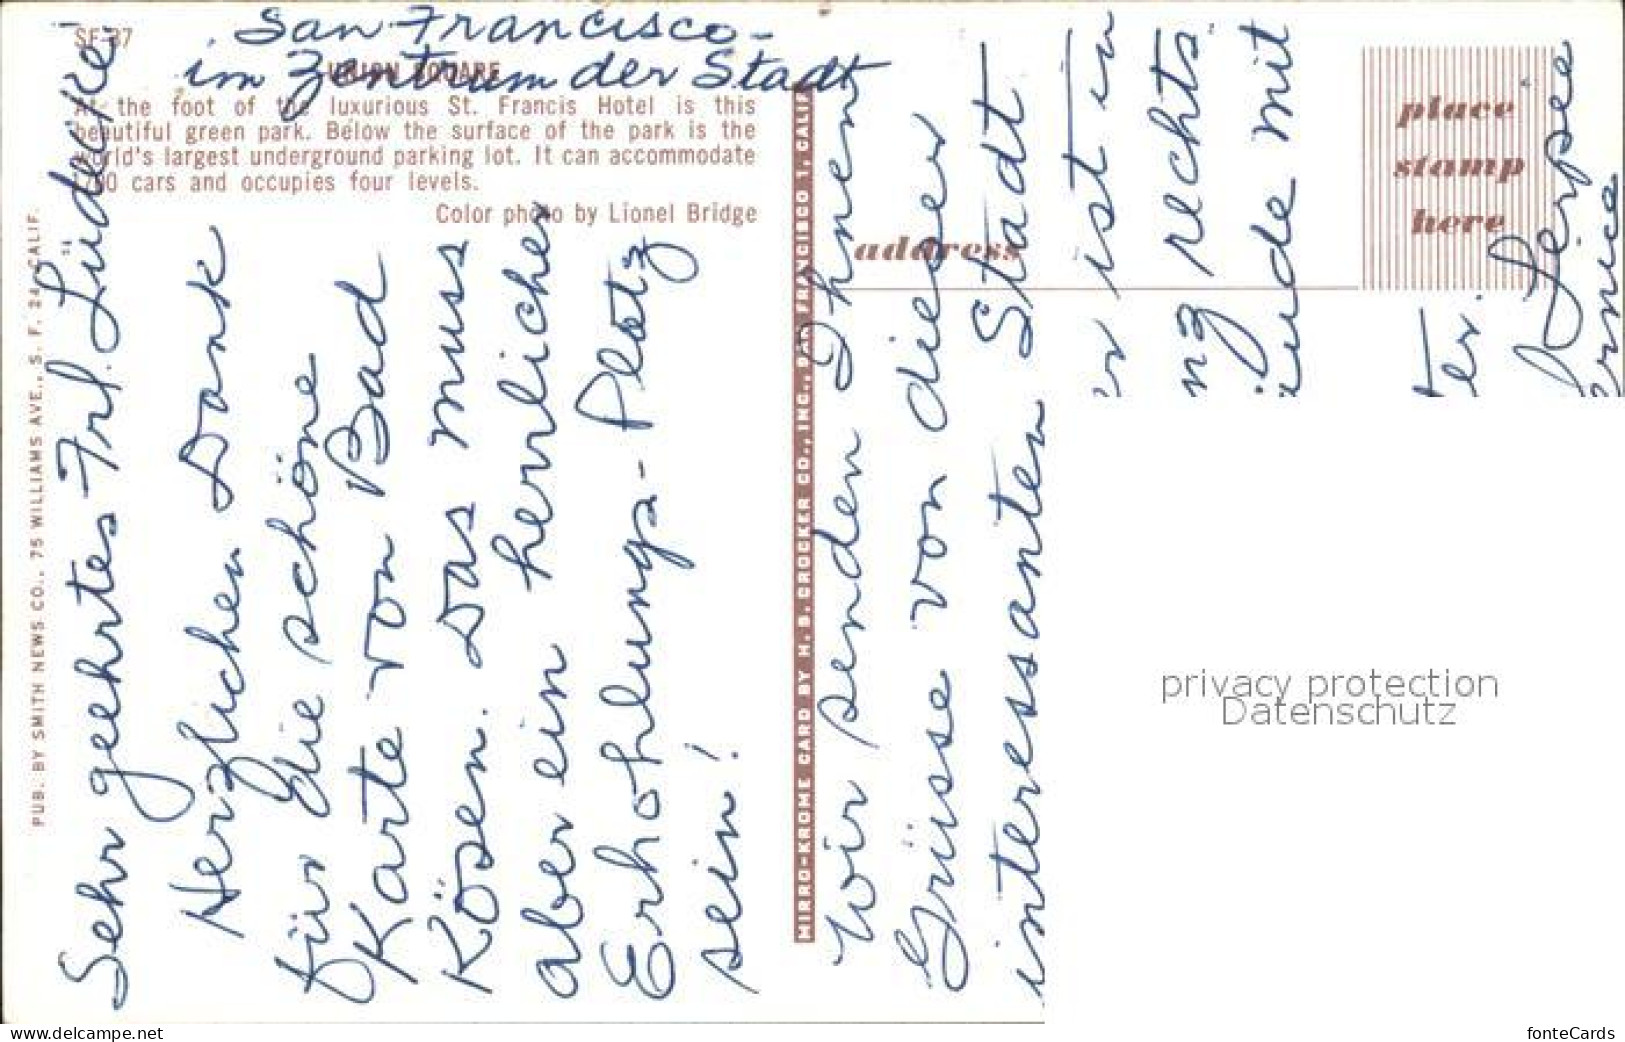 San Francisco -
im Zentrum der Stadt
SF-37
UNION SQUARE
At the foot of the luxurious St. Francis Hotel is this
beautiful green park. Below the surface of the park is the
world's largest underground parking lot. It can accommodate
cars and occupies four levels.
Color photo by Lionel Bridge
PUB. BY SMITH NEWS CO., 75 WILLIAMS AVE., S. F. 24, CALIF.
Sehr geehrtes Frl. Lüdecke!
Herzlichen Dank
für die schöne
Karte von Bad
Kösen. Das muss
aber ein herrlicher
Erhohlungs-Platz
sein!
MIRRO-KROME CARD BY H. S. CROCKER CO., INC., SAN FRANCISCO 1, CALIF.
address
place
stamp
here
Wir senden Ihnen
Grüsse von dieser
interessanten Stadt
r ist in
nz rechts.
äude mit
ter.
privacy protection
Datenschutz
www.delcampe.net
fonteCards